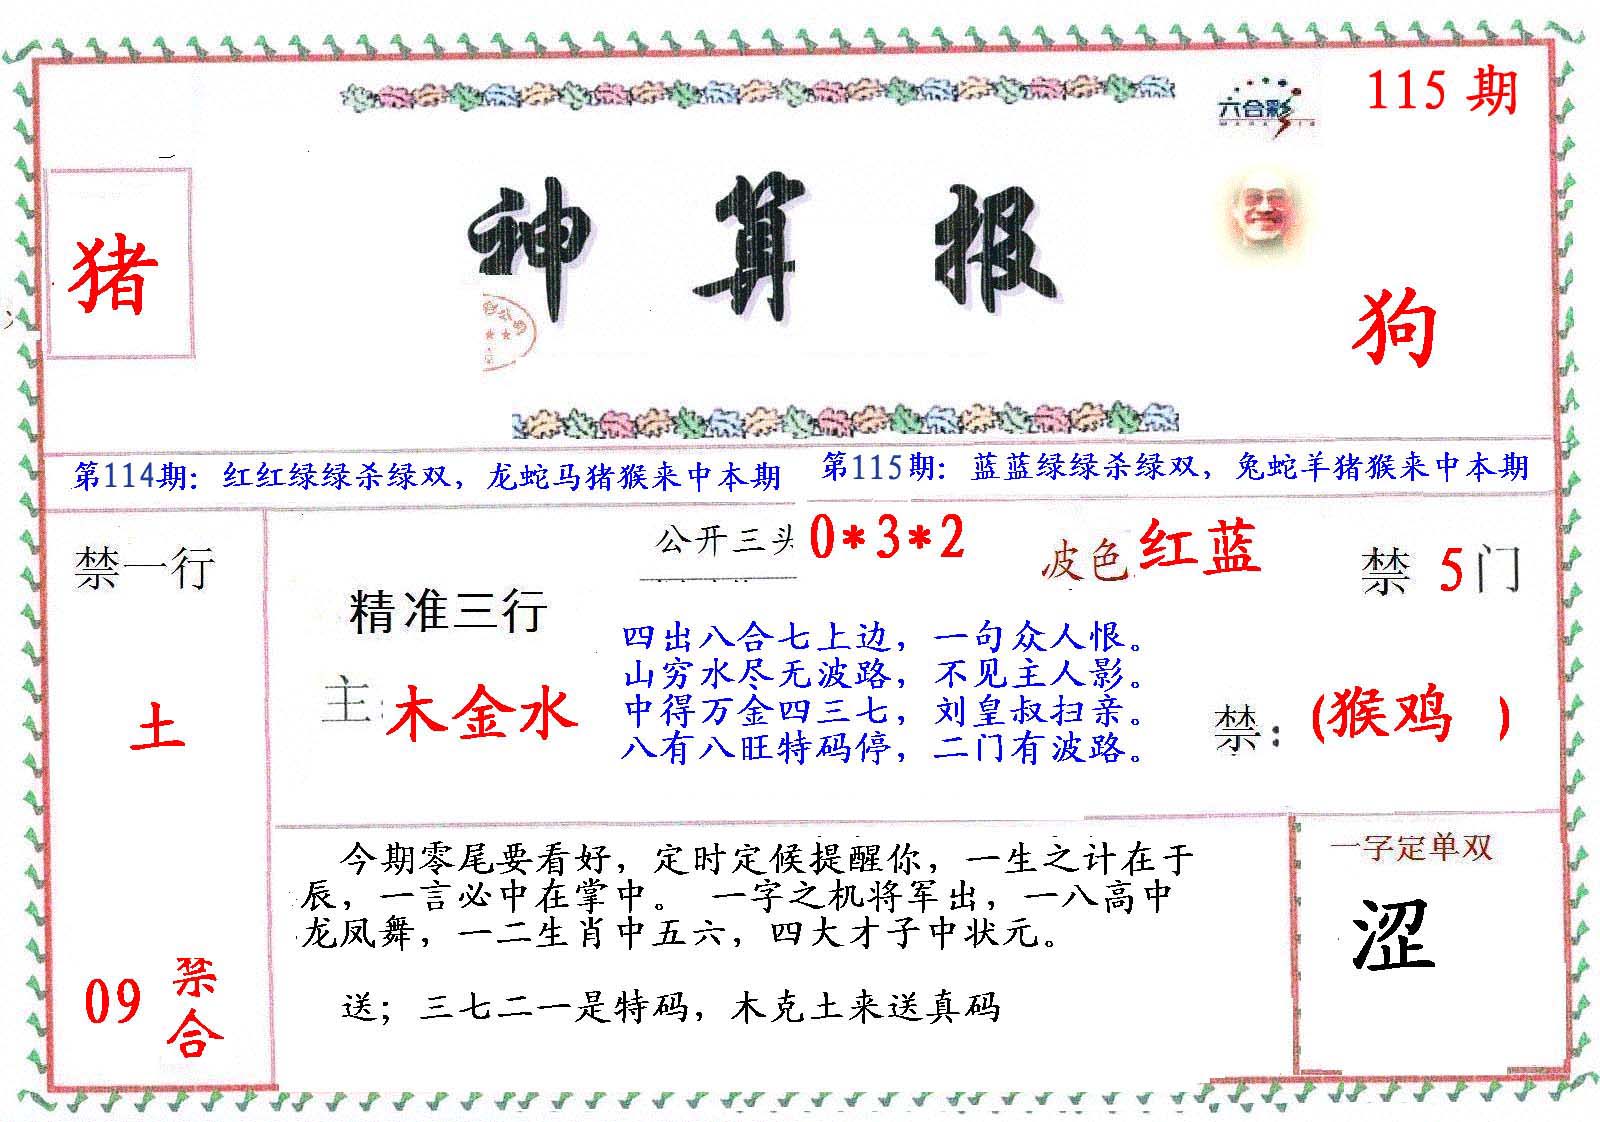 六合彩
115 期
神算报
猪
狗
第114期：红红绿绿杀绿双，龙蛇马猪猴来中本期
第115期：蓝蓝绿绿杀绿双，兔蛇羊猪猴来中本期
禁一行
土
09 禁合
公开三头 0*3*2
波色 红蓝
禁 5 门
精准三行
主: 木金水
四出八合七上边，一句众人恨。
山穷水尽无波路，不见主人影。
中得万金四三七，刘皇叔扫亲。
八有八旺特码停，二门有波路。
禁: (猴鸡 )
今期零尾要看好，定时定候提醒你，一生之计在于
辰，一言必中在掌中。 一字之机将军出，一八高中
龙凤舞，一二生肖中五六，四大才子中状元。
送；三七二一是特码，木克土来送真码
一字定单双
涩